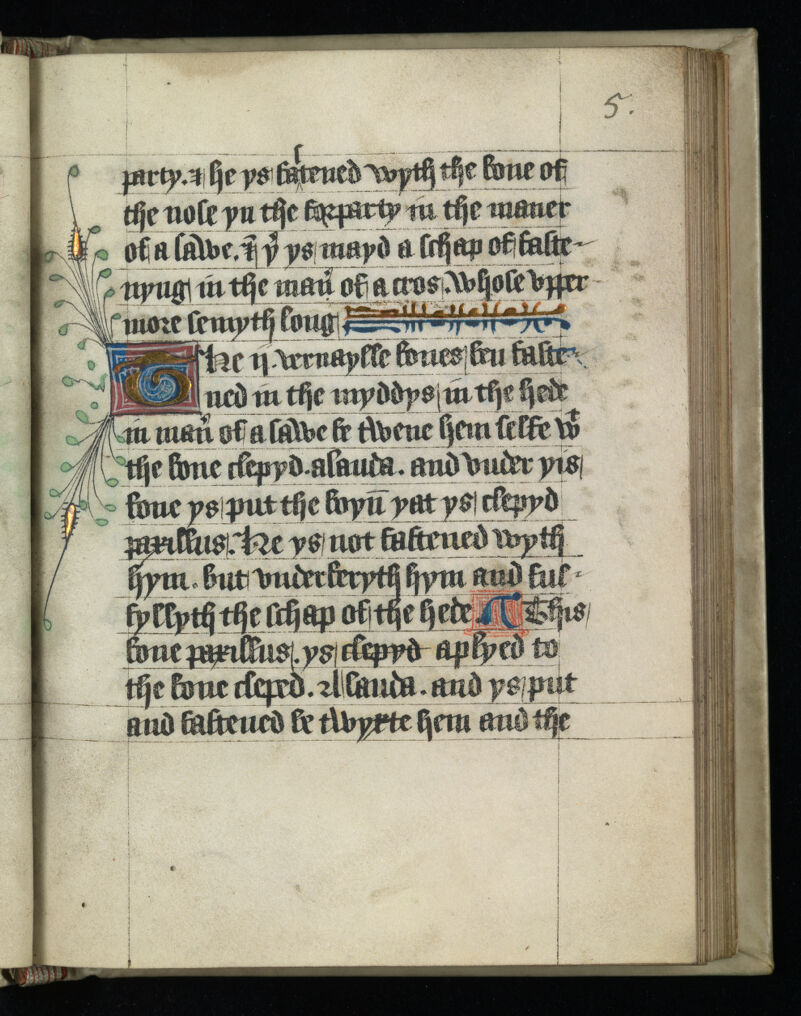 5.
party. & he ys fastened wyth the bone of
the nose yn the forparty in the maner
of a sawe. & yͭ ys mayd a schap of faste-
nyng in the man̄ of a cros. Whose vpper
more semyth long
The ij. vernaylle bones ben faste-
ned in the myddys in the hede
in man̄ of a sawe be twene hem selfe wͭ
the bone clepyd. asauda. and vnder yis
bone ys put the boyn̄ yat ys clepyd
paxillus. He ys not fastened wyth
hym. but vnderberyth hym and ful-
fyllyth the schap of the hede. This
bone paxillus. ys clepyd aplyed to
the bone cleped. Asauda. and ys put
and fastened be twyxte hem and the